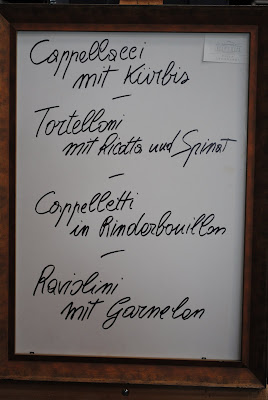 Cappellacci
mit Kürbis
–
Tortelloni
mit Ricotta und Spinat
–
Cappelletti
in Rinderbouillon
–
Raviolini
mit Garnelen